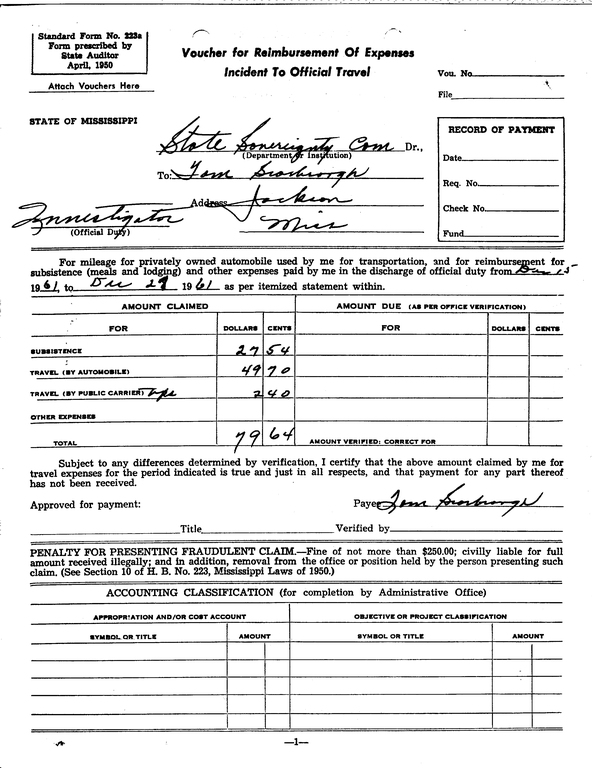 Standard Form No. 223a
Form prescribed by
State Auditor
April, 1950
Attach Vouchers Here
Voucher for Reimbursement Of Expenses
Incident To Official Travel
Vou. No.
File
STATE OF MISSISSIPPI
State Sovereignty Com Dr.,
(Department or Institution)
To: Tom Scarbrough
Address Jackson
Miss
Investigator
(Official Duty)
RECORD OF PAYMENT
Date
Req. No.
Check No.
Fund
For mileage for privately owned automobile used by me for transportation, and for reimbursement for
subsistence (meals and lodging) and other expenses paid by me in the discharge of official duty from Dec 15
1961, to Dec 29 1961 as per itemized statement within.
AMOUNT CLAIMED
AMOUNT DUE (AS PER OFFICE VERIFICATION)
FOR DOLLARS CENTS FOR DOLLARS CENTS
SUBSISTENCE 27 54
TRAVEL (BY AUTOMOBILE) 49 70
TRAVEL (BY PUBLIC CARRIER) tips 2 40
OTHER EXPENSES
TOTAL 79 64 AMOUNT VERIFIED: CORRECT FOR
Subject to any differences determined by verification, I certify that the above amount claimed by me for
travel expenses for the period indicated is true and just in all respects, and that payment for any part thereof
has not been received.
Approved for payment: Payee Tom Scarbrough
Title Verified by
PENALTY FOR PRESENTING FRAUDULENT CLAIM.—Fine of not more than $250.00; civilly liable for full
amount received illegally; and in addition, removal from the office or position held by the person presenting such
claim. (See Section 10 of H. B. No. 223, Mississippi Laws of 1950.)
ACCOUNTING CLASSIFICATION (for completion by Administrative Office)
APPROPRIATION AND/OR COST ACCOUNT OBJECTIVE OR PROJECT CLASSIFICATION
SYMBOL OR TITLE AMOUNT SYMBOL OR TITLE AMOUNT
—1—